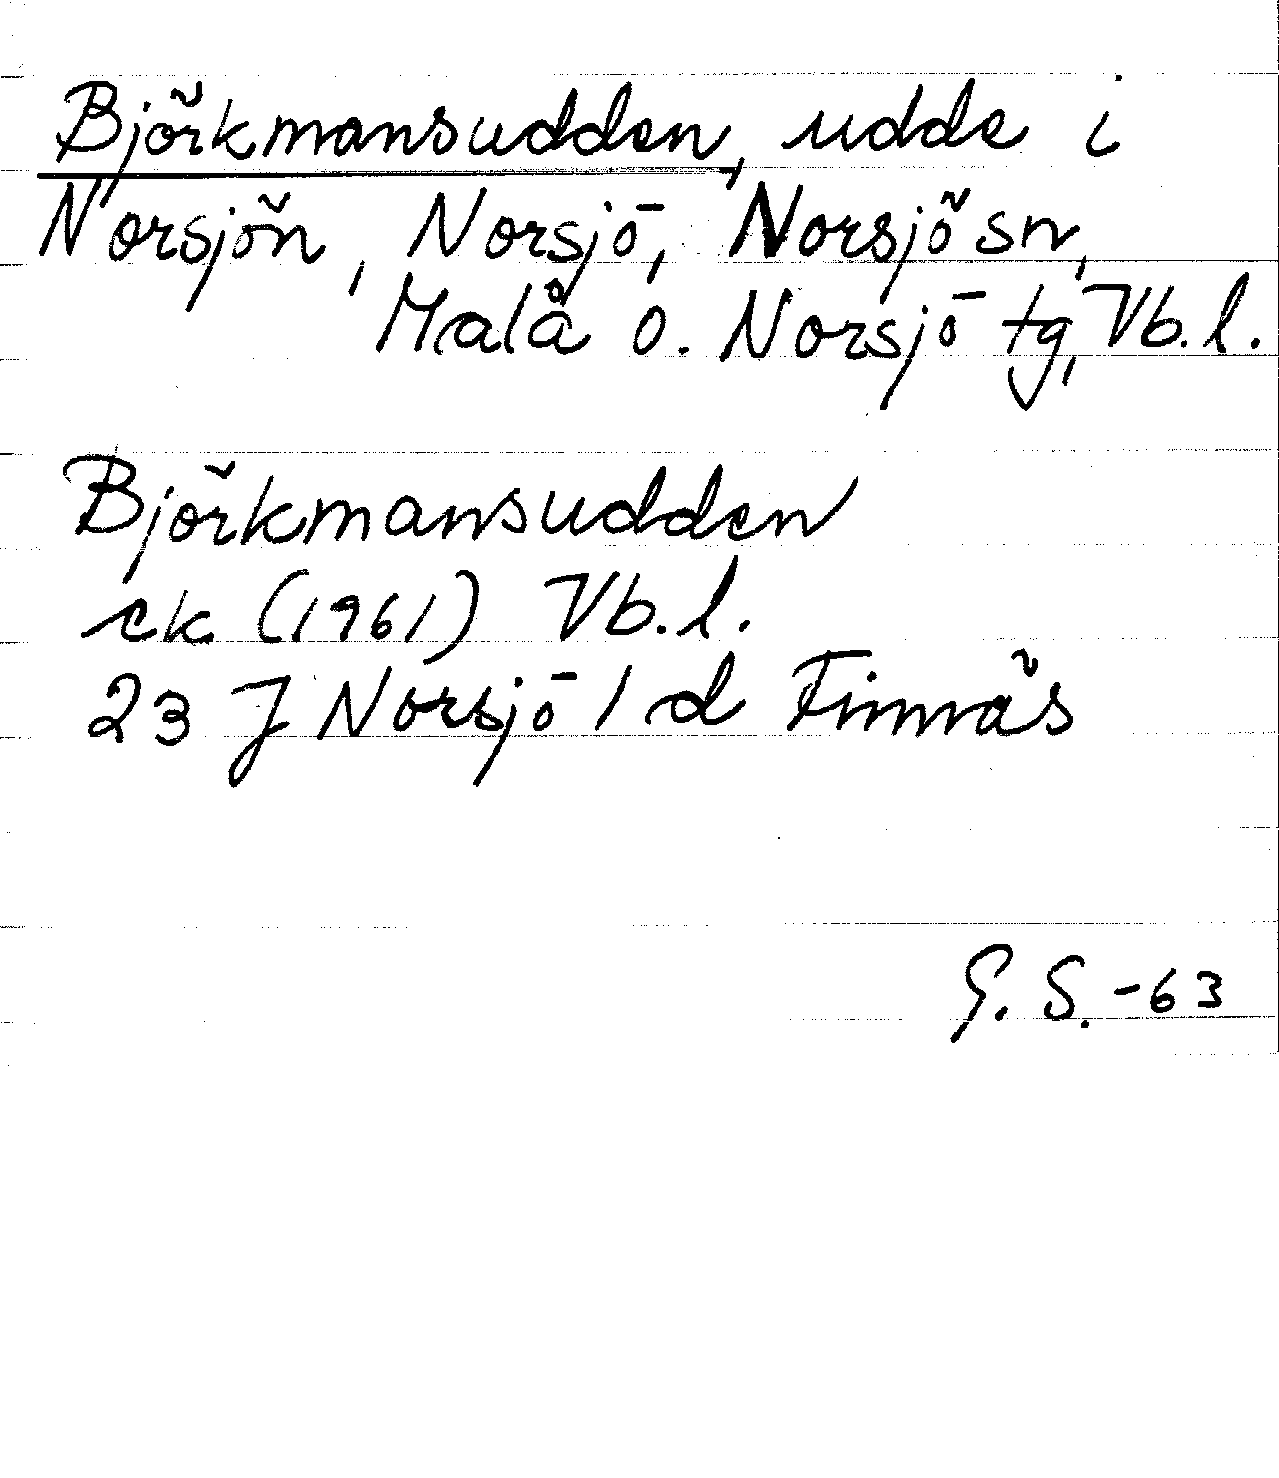 Björkmansudden, udde i
Norsjön, Norsjö, Norsjö sn,
Malå o. Norsjö tg, Vb. l.
Björkmansudden
ek (1961) Vb. l.
23 J Norsjö 1 d Finnäs
G. S. -63